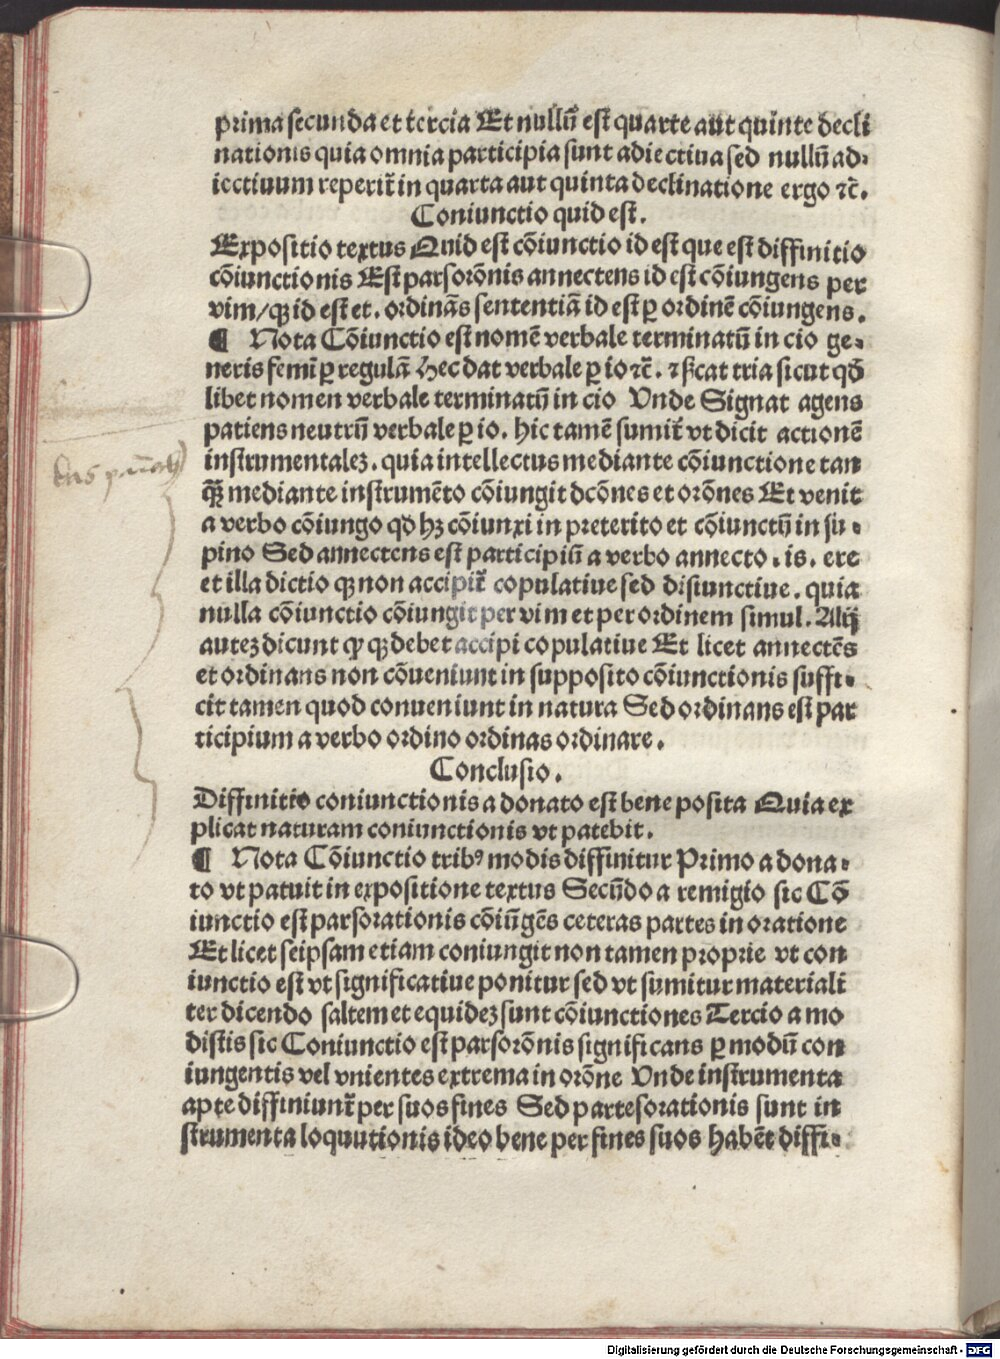 prima secunda et tercia Et nullū est quarte aut quinte decli
nationis quia omnia participia sunt adiectiua sed nullū ad-
iectiuum reperit᷑ in quarta aut quinta declinatione ergo ⁊c̄.
Coniunctio quid est.
Expositio textus Quid est cōiunctio id est que est diffinitio
cōiunctionis Est pars orōnis annectens id est cōiungens per
vim/qꝫ id est et. ordinās sententiā id est ꝑ ordinē cōiungens.
¶ Nota Cōiunctio est nomē verbale terminatū in cio ge-
neris femī ꝑ regulā Hec dat verbale ꝑ io ⁊c̄. ⁊ ſſcat tria sicut qđ
libet nomen verbale terminatū in cio Vnde Signat agens
patiens neutrū verbale ꝑ io. hic tamē sumit᷑ vt dicit actionē
instrumentaleꝫ. quia intellectus mediante cōiunctione tan
qꝫ̄ mediante instrumēto cōiungit dcōnes et orōnes Et venit
a verbo cōiungo qđ hꝫ cōiunxi in preterito et cōiunctū in su-
pino Sed annectens est participiū a verbo annecto. is. ere
et illa dictio qꝫ non accipit᷑ copulatiue sed disiunctiue. quia
nulla cōiunctio cōiungit per vim et per ordinem simul. Aliq̄
auteꝫ dicunt ꝙ qꝫ debet accipi copulatiue Et licet annectēs
et ordinans non cōueniunt in supposito cōiunctionis suffi-
cit tamen quod conueniunt in natura Sed ordinans est par
ticipium a verbo ordino ordinas ordinare.
Conclusio.
Diffinitio coniunctionis a donato est bene posita Quia ex
plicat naturam coniunctionis vt patebit.
¶ Nota Cōiunctio tribꝰ modis diffinitur Primo a dona-
to vt patuit in expositione textus Secūdo a remigio sic Cō
iunctio est pars orationis cōiūgēs ceteras partes in oratione
Et licet seipsam etiam coniungit non tamen proprie vt con
iunctio est vt significatiue ponitur sed vt sumitur materiali
ter dicendo saltem et equideꝫ sunt cōiunctiones Tercio a mo
distis sic Coniunctio est pars orōnis significans ꝑ modū con
iungentis vel vnientes extrema in orōne Vnde instrumenta
apte diffiniunt᷑ per suos fines Sed partes orationis sunt in
strumenta loquutionis ideo bene per fines suos habēt diffi-
Digitalisierung gefördert durch die Deutsche Forschungsgemeinschaft - DFG